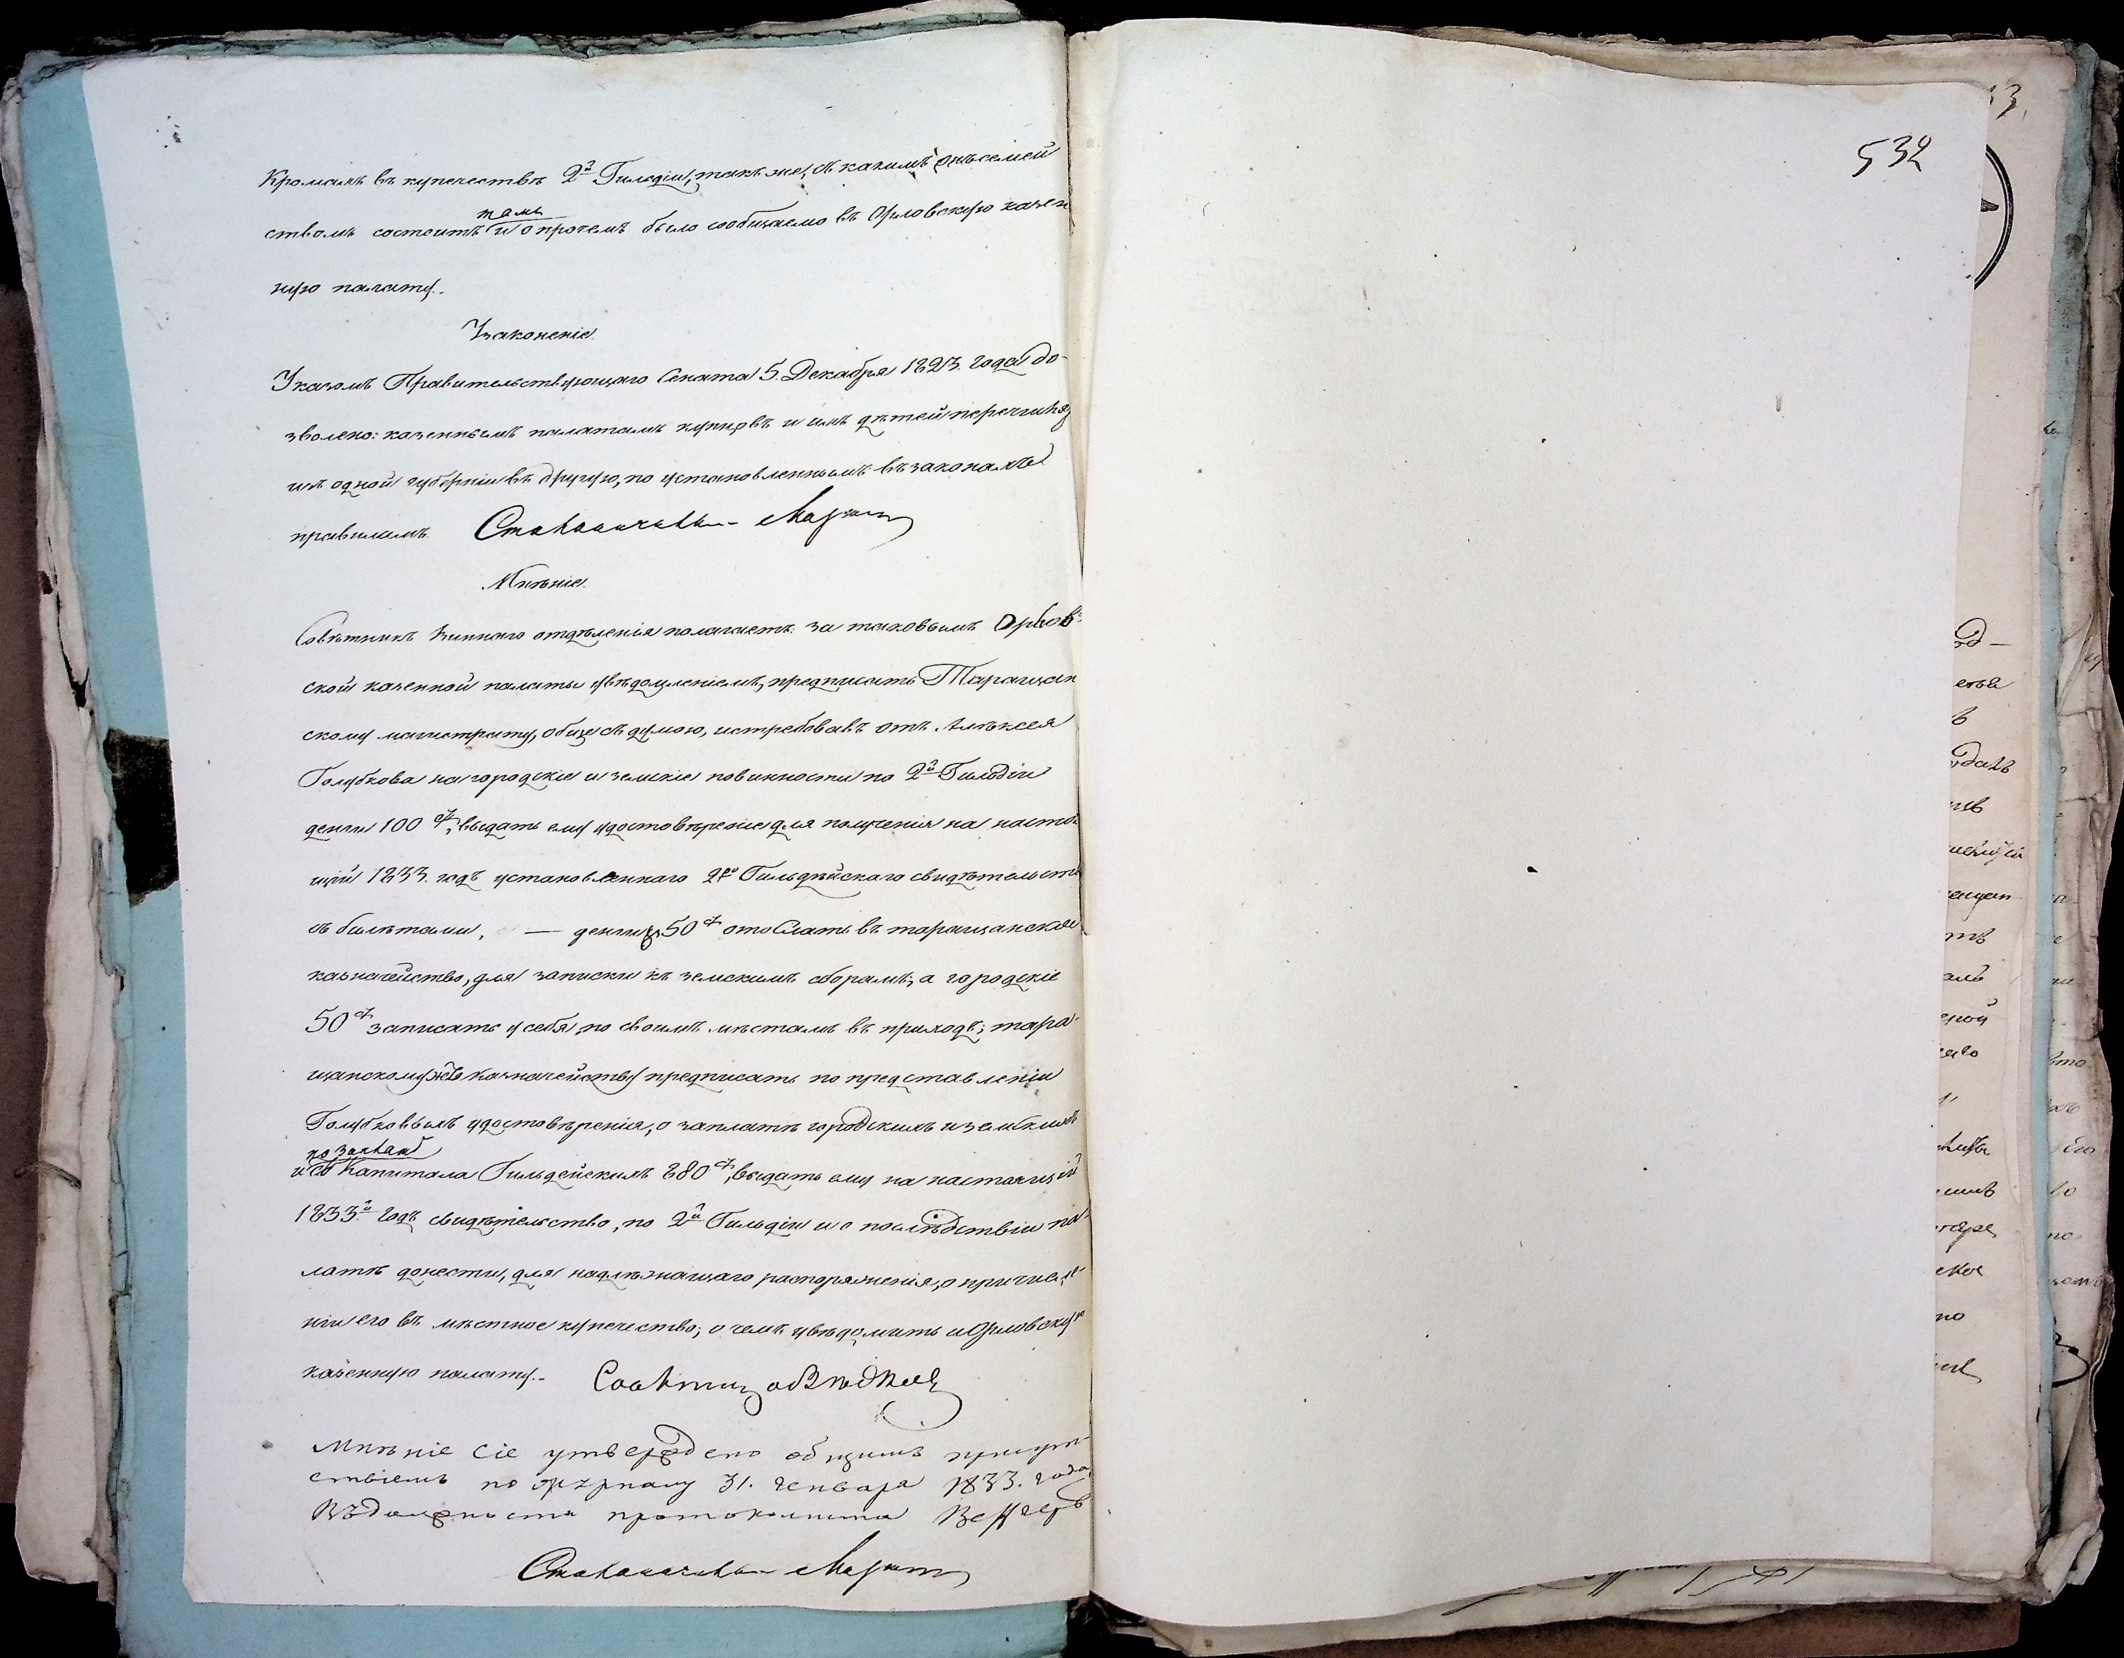 532
Кромахъ въ купечествѣ 2й Гильдіи, такъ же, съ какимъ онъ семей
там
ствомъ состоитъ и о прочемъ было сообщаемо въ Орловскую казен
ную палату.
Узаконеніе.
Указомъ Правительствующаго Сената 5. Декабря 1823. года до-
зволено: казеннымъ палатамъ купцовъ и ихъ дѣтей перечислять
изъ одной губерніи въ другую, по установленнымъ въ законахъ
правиламъ.
Мнѣніе.
Совѣтникъ Виннаго отдѣленія полагаетъ: за таковымъ Орлов-
ской казенной палаты увѣдомленіемъ, предписать Таращан
скому магистрату, обще съ думою, истребовавъ отъ Алексея
Голубкова на городскіе и земскіе повинности по 2й Гильдіи
денги 100 р, выдать ему удостовѣреніе для полученія на настоя
щій 1833. годъ установленнаго 2й Гильдѣйскаго свидѣтельства
съ билѣтами, — денги 50 р отослать въ таращанское
казначейство, для записки къ земскимъ сборамъ; а городскіе
50 р записать у себя по своимъ мѣстамъ въ приходъ; тара-
щанскому же казначейству предписать по представленіи
Голубковымъ удостовѣренія, о заплатѣ городскихъ и земскихъ
и съ капитала Гильдейскихъ 880 р, выдать ему на настоящій
1833й годъ свидѣтельство, по 2й Гильдіи и о послѣдствіи па-
латѣ донести, для надлежащаго распоряженія, о причисле-
ніи его въ мѣстное купечество; о чемъ увѣдомить и Орловскую
казенную палату.
Мнѣніе сіе утверждено общимъ присут-
ствіемъ по журналу 31. генваря 1833. года
Въ должности протоколиста